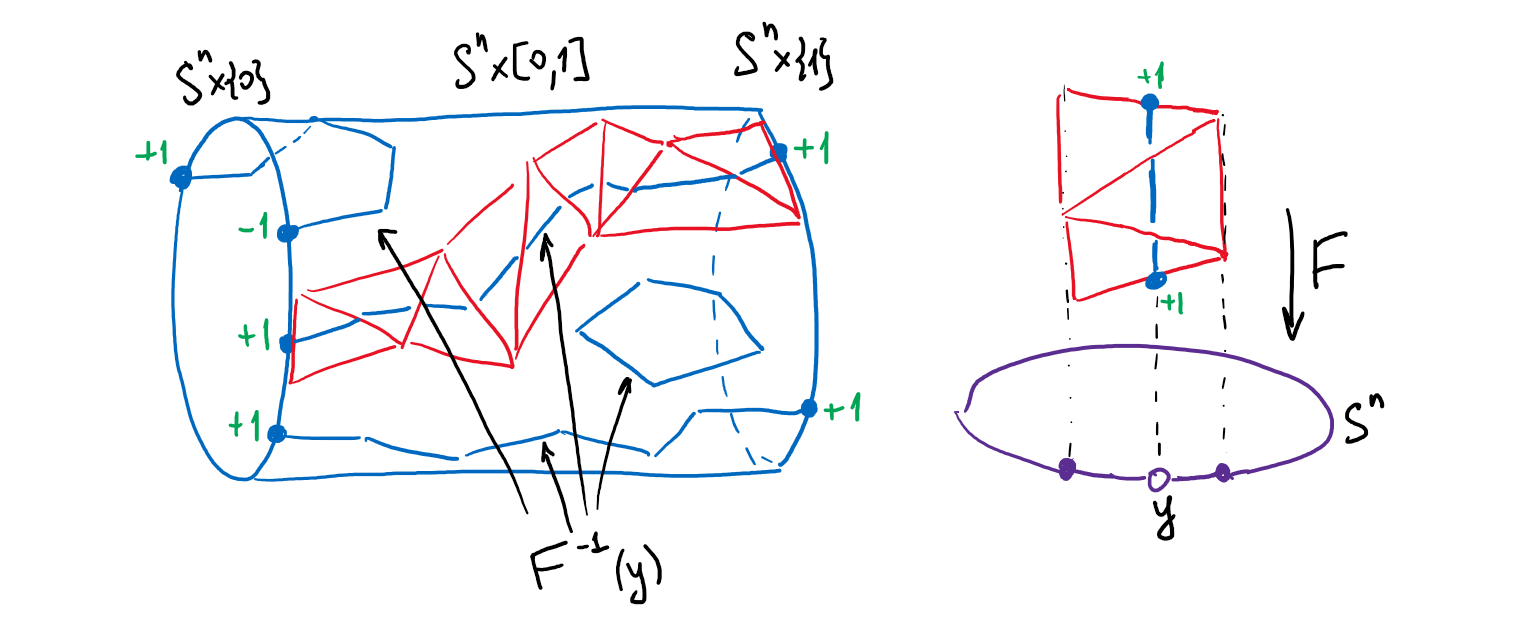 Sⁿ×{0}
Sⁿ×[0,1]
Sⁿ×{1}
+1
-1
+1
+1
+1
+1
F⁻¹(y)
+1
+1
F
Sⁿ
y